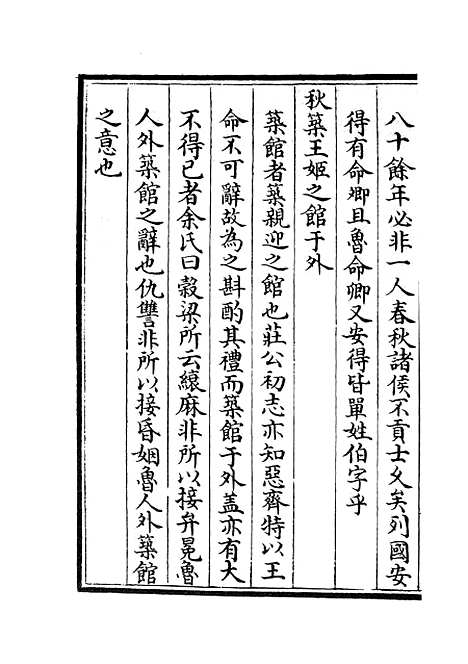 八十餘年必非一人春秋諸侯不貢士久矣列國安
得有命卿且魯命卿又安得皆單姓伯字乎
秋築王姬之館于外
築館者築親迎之館也莊公初志亦知惡齊特以王
命不可辭故為之斟酌其禮而築館于外盖亦有大
不得已者余氏曰榖梁所云縗麻非所以接弁冕魯
人外築館之辭也仇讐非所以接昏姻魯人外築館
之意也